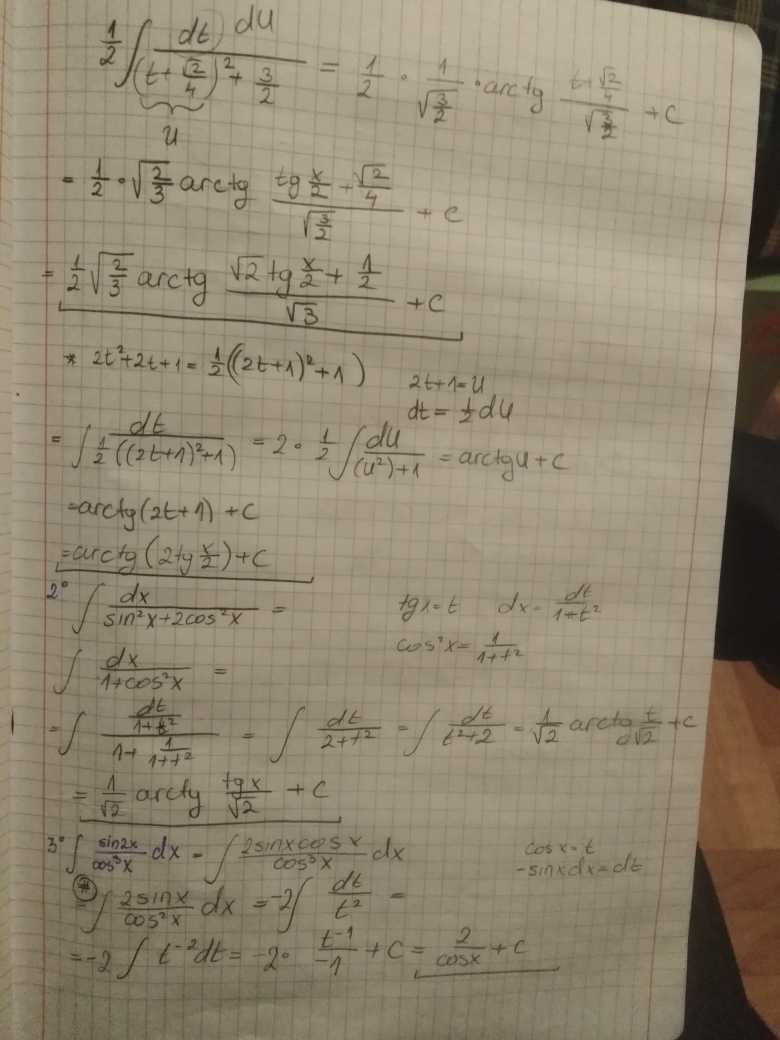 1/2 ∫ dt du / ((t+√2/4)² + 3/2) = 1/2 · 1/√(3/2) · arctg (t+√2/4)/√(3/2) + C
u
= 1/2 · √(2/3) arctg (tg x/2 + √2/4)/√(3/2) + C
= 1/2 √(2/3) arctg (√2 tg x/2 + 1/2)/√3 + C
* 2t²+2t+1 = 1/2((2t+1)²+1) 2t+1=u
dt = 1/2 du
= ∫ dt / (1/2((2t+1)²+1)) = 2 · 1/2 ∫ du/((u²)+1) = arctg u + C
= arctg(2t+1) + C
= arctg(2tg x/2) + C
2° ∫ dx/(sin²x+2cos²x) = tgx=t dx = dt/(1+t²)
cos²x = 1/(1+t²)
∫ dx/(1+cos²x) =
= ∫ (dt/(1+t²))/(1+ 1/(1+t²)) = ∫ dt/(2+t²) = ∫ dt/(t²+2) = 1/√2 arctg t/√2 + C
= 1/√2 arctg tgx/√2 + C
3° ∫ sin2x/cos³x dx = ∫ 2sinxcosx/cos³x dx cosx=t
-sinxdx=dt
* = ∫ 2sinx/cos²x dx = -2∫ dt/t² =
= -2 ∫ t⁻²dt = -2 · t⁻¹/-1 + C = 2/cosx + C